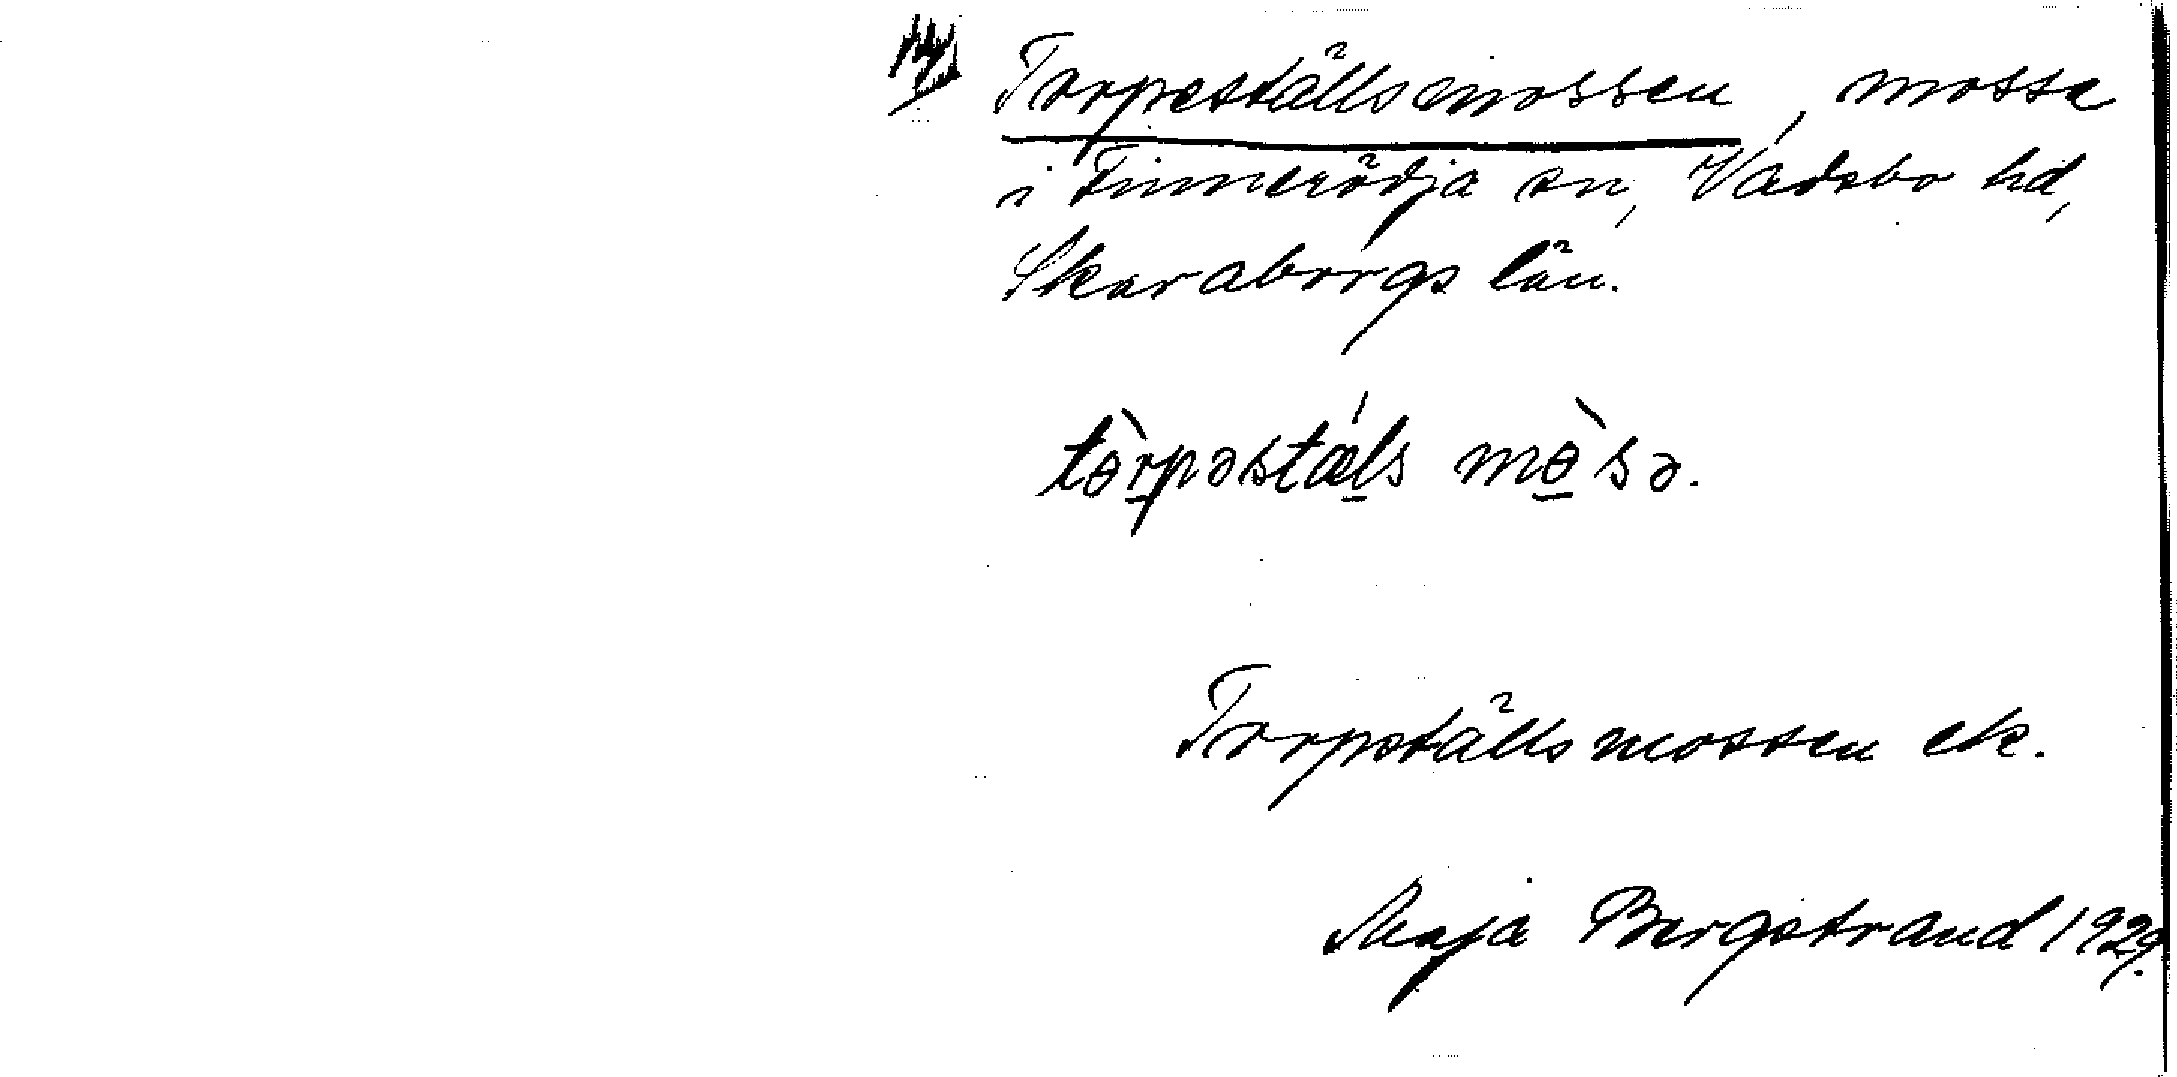 Torpeställsmossen, mosse
i Finnerödja sn, Vadsbo hd,
Skaraborgs län.
tòrpəstáls mòsə.
Torpställsmossen ek.
Maja Bergstrand 1929.